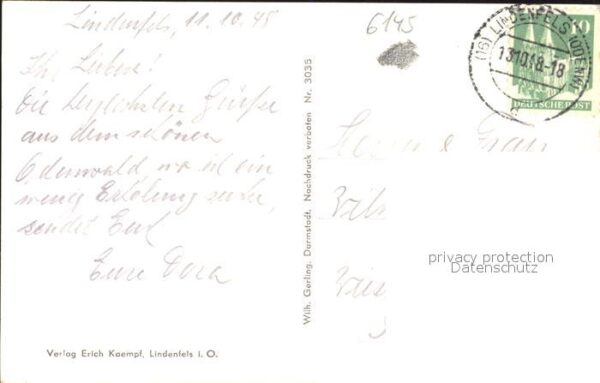 Lindenfels, 11.10.48
6145
Ihr Lieben!
Die herzlichsten Grüße
aus dem schönen
Odenwald wo ich ein
wenig Erholung suche,
sendet Euch
Eure Dora
Verlag Erich Kaempf, Lindenfels i. O.
Wilh. Gerling, Darmstadt. Nachdruck verboten Nr. 3035
(16) LINDENFELS (ODENW)
13.10.48-18
10
DEUTSCHE POST
Herrn & Frau
privacy protection
Datenschutz